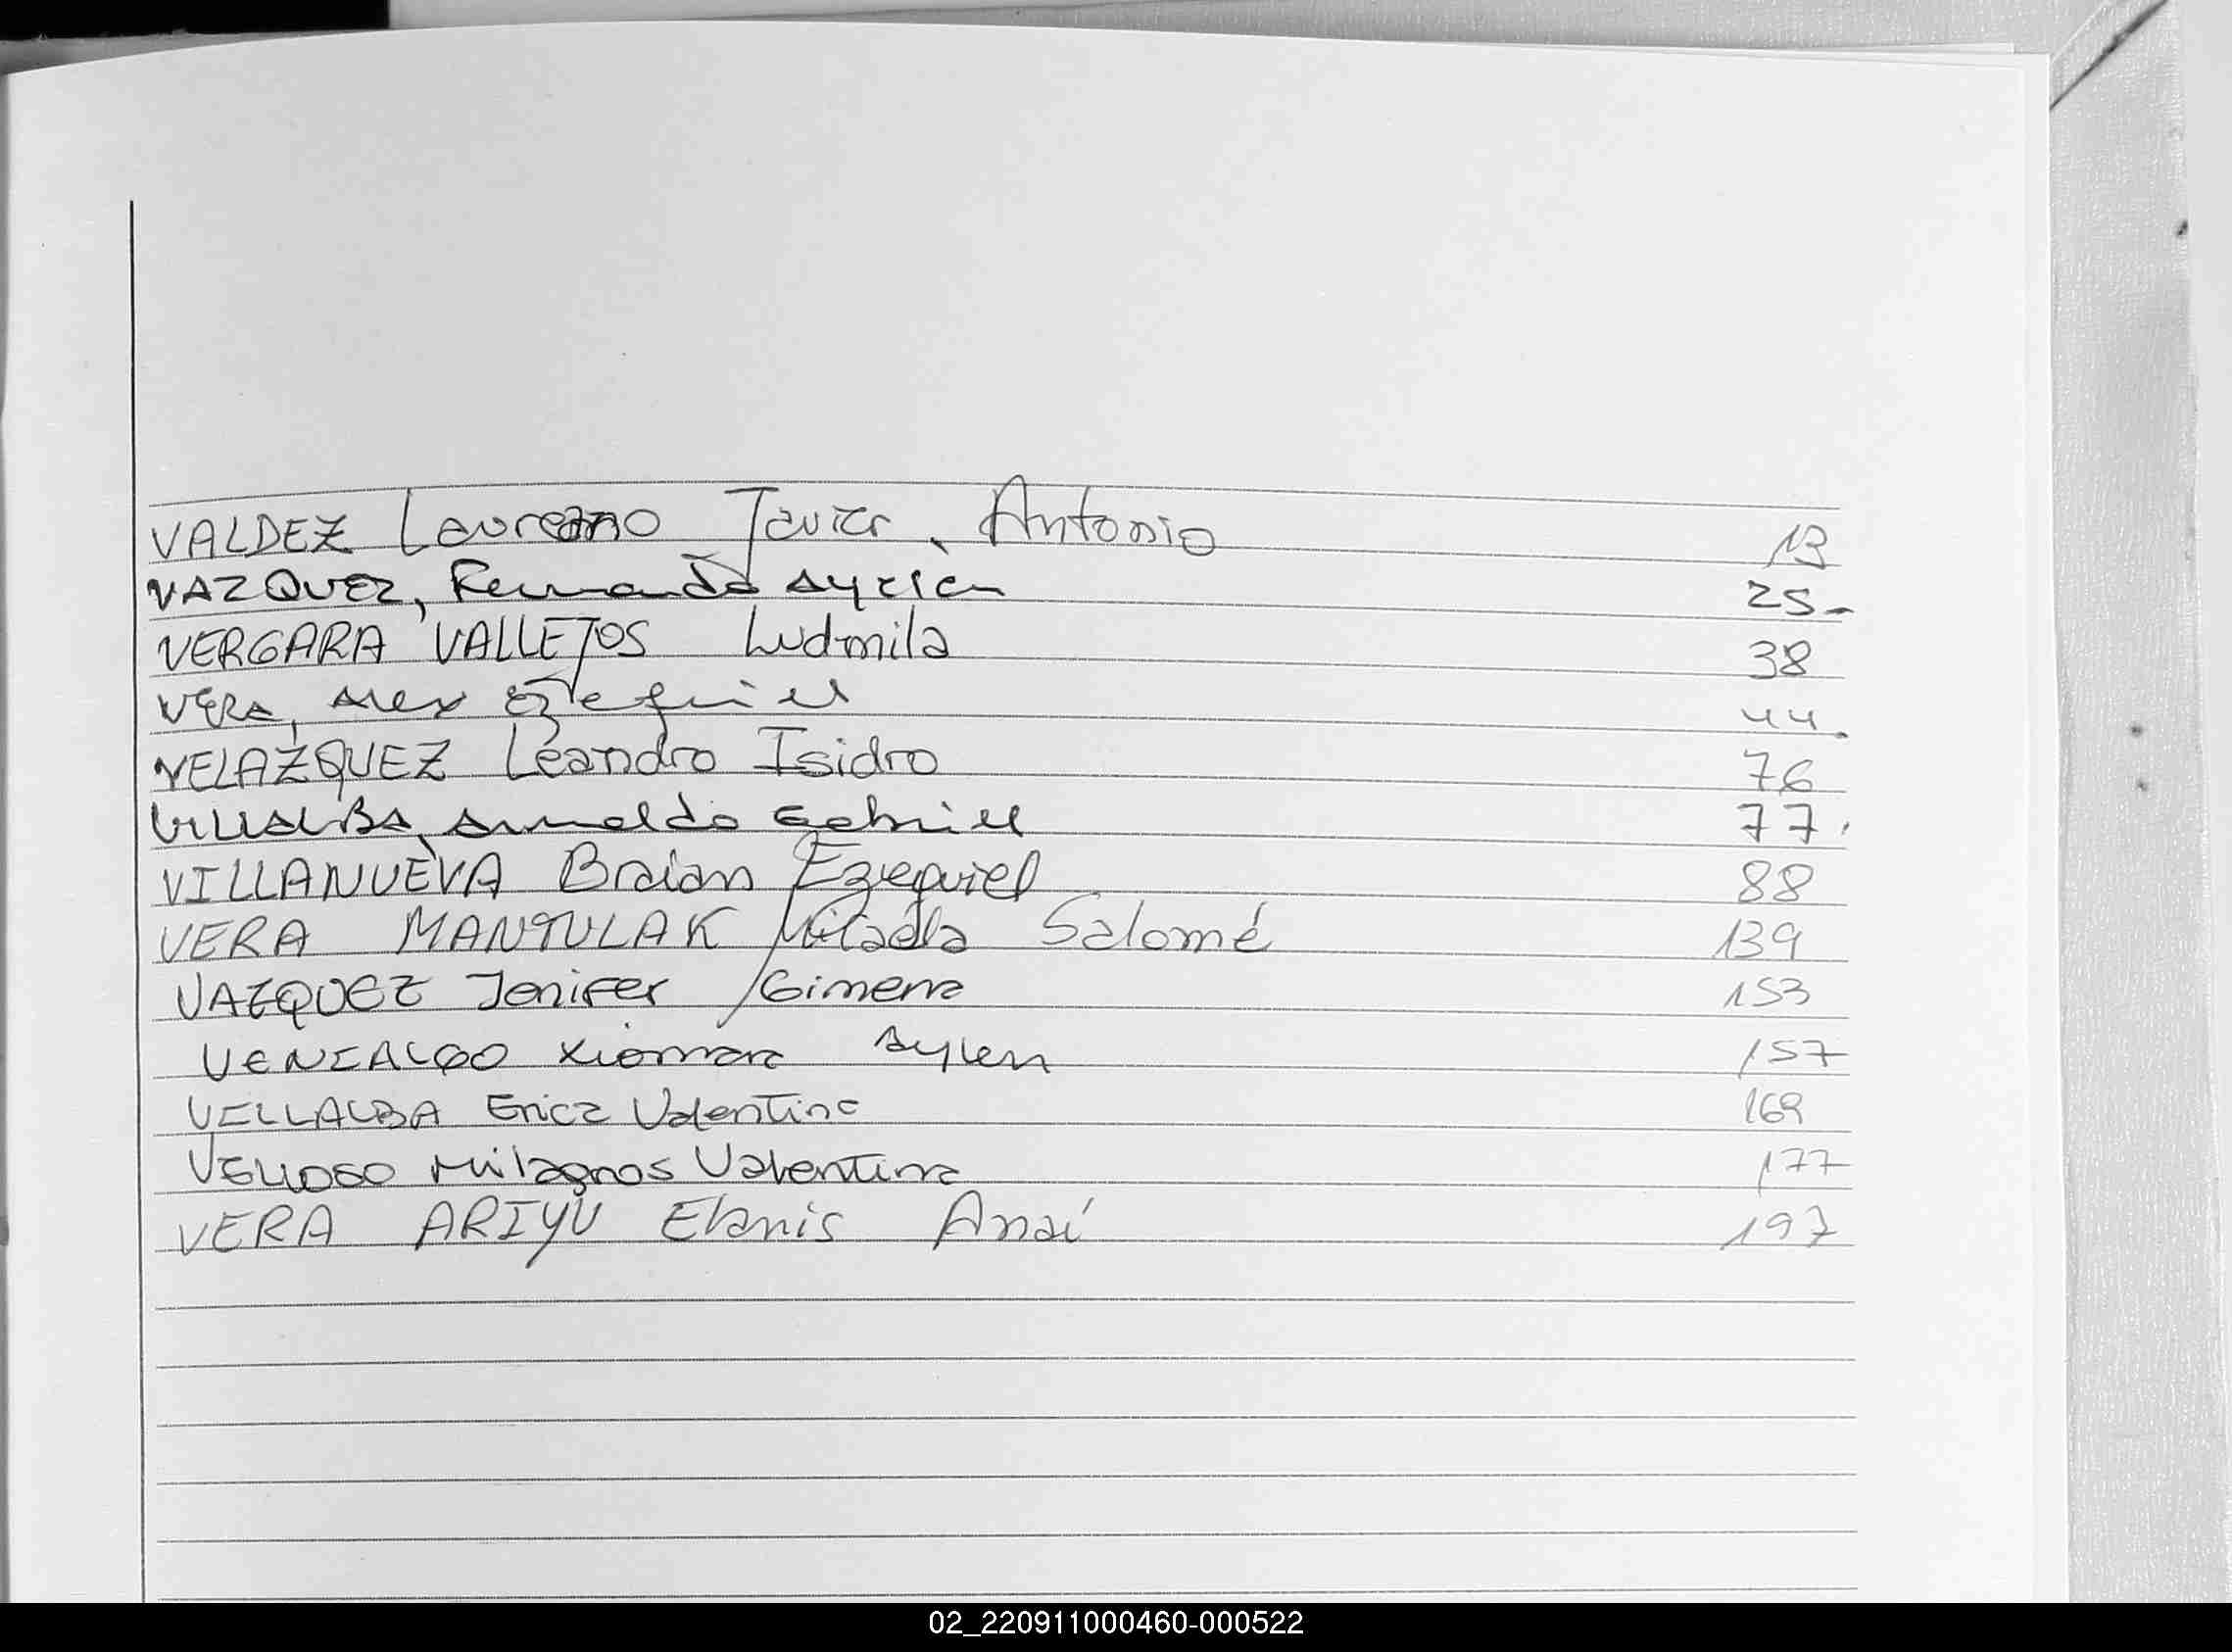 VALDEZ Laureano Javier, Antonio 13
VAZQUEZ, Fernanda Aylen 25-
VERGARA VALLEJOS Ludmila 38
VERA, Alex Ezequiel 44.
VELAZQUEZ Leandro Isidro 76
VILLALBA, Arnaldo Gabriel 77.
VILLANUEVA Braian Ezequiel 88
VERA MANTULAK Micaela Salomé 139
VAZQUEZ Jenifer Gimena 153
VENIALGO Xiomara Aylen 157
VILLALBA Erica Valentina 169
VELLOSO Milagros Valentina 177
VERA ARIYU Elanis Anaí 197
02_220911000460-000522